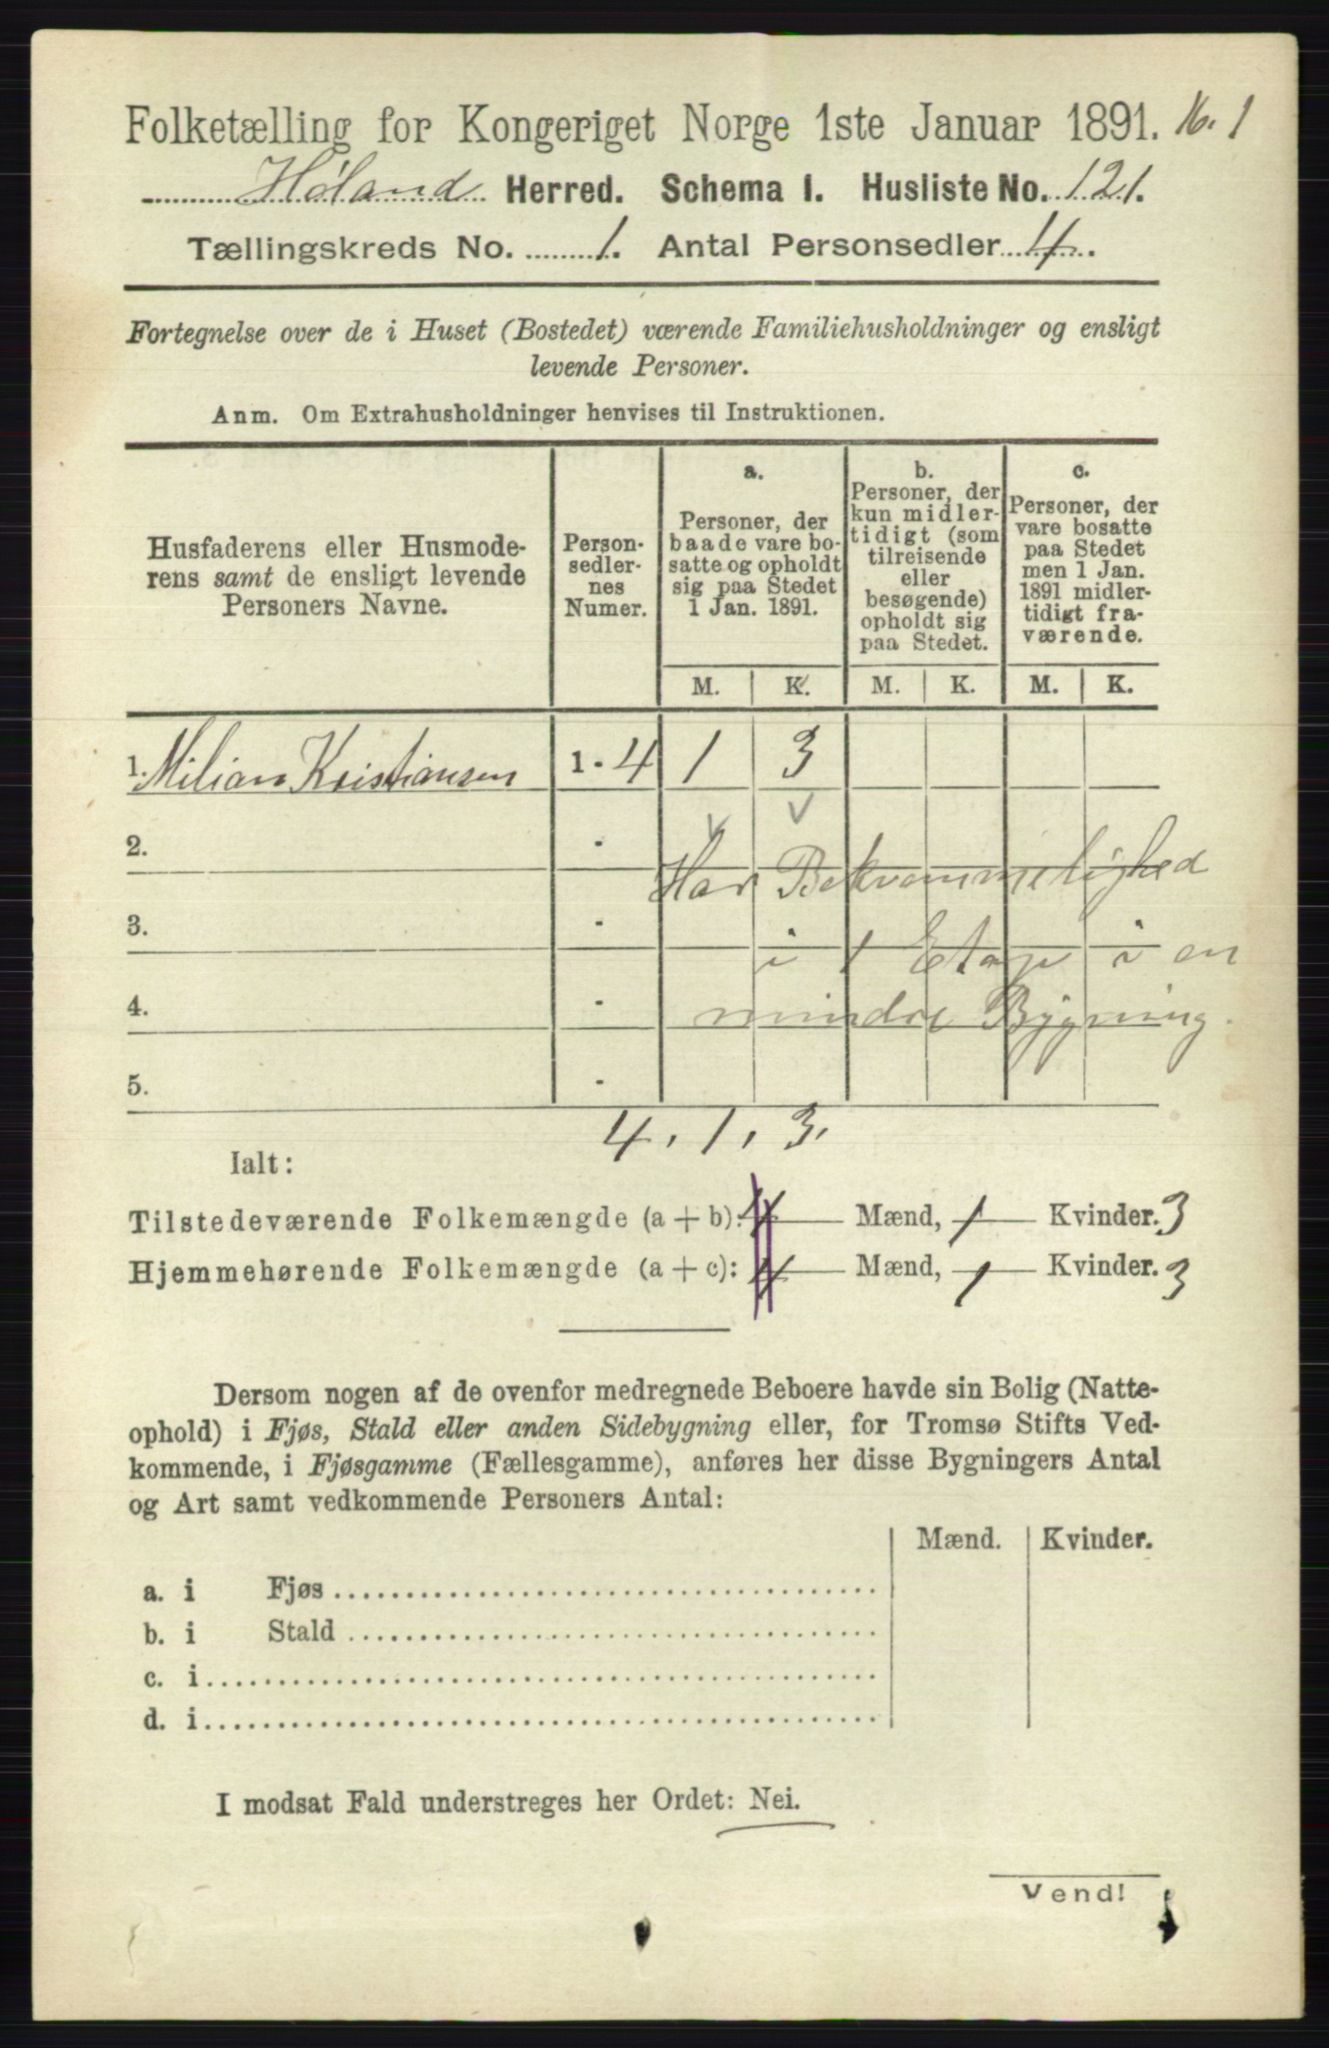 Folketælling for Kongeriget Norge 1ste Januar 1891. 16.1
Høland Herred. Schema 1. Husliste No. 121.
Tællingskreds No. 1. Antal Personsedler 4.
Fortegnelse over de i Huset (Bostedet) værende Familiehusholdninger og ensligt
levende Personer.
Anm. Om Extrahusholdninger henvises til Instruktionen.
Husfaderens eller Husmode-
rens samt de ensligt levende
Personers Navne.
Person-
sedler-
nes
Numer.
a.
Personer, der
baade vare bo-
satte og opholdt
sig paa Stedet
1 Jan. 1891.
b.
Personer, der
kun midler-
tidigt (som
tilreisende
eller
besøgende)
opholdt sig
paa Stedet.
c.
Personer, der
vare bosatte
paa Stedet
men 1 Jan.
1891 midler-
tidigt fra-
værende.
M. K. M. K. M. K.
1. Milian Kristiansen 1 - 4 1 3
2. -
Har Bekvemmelighed
3. -
i 1 Etage i en
4. -
mindre Bygning.
5. -
4. 1. 3.
Ialt:
Tilstedeværende Folkemængde (a + b): 4 Mænd, 1 Kvinder. 3
Hjemmehørende Folkemængde (a + c): 4 Mænd, 1 Kvinder. 3
Dersom nogen af de ovenfor medregnede Beboere havde sin Bolig (Natte-
ophold) i Fjøs, Stald eller anden Sidebygning eller, for Tromsø Stifts Ved-
kommende, i Fjøsgamme (Fællesgamme), anføres her disse Bygningers Antal
og Art samt vedkommende Personers Antal:
Mænd. Kvinder.
a. i Fjøs
b. i Stald
c. i
d. i
I modsat Fald understreges her Ordet: Nei.
Vend!